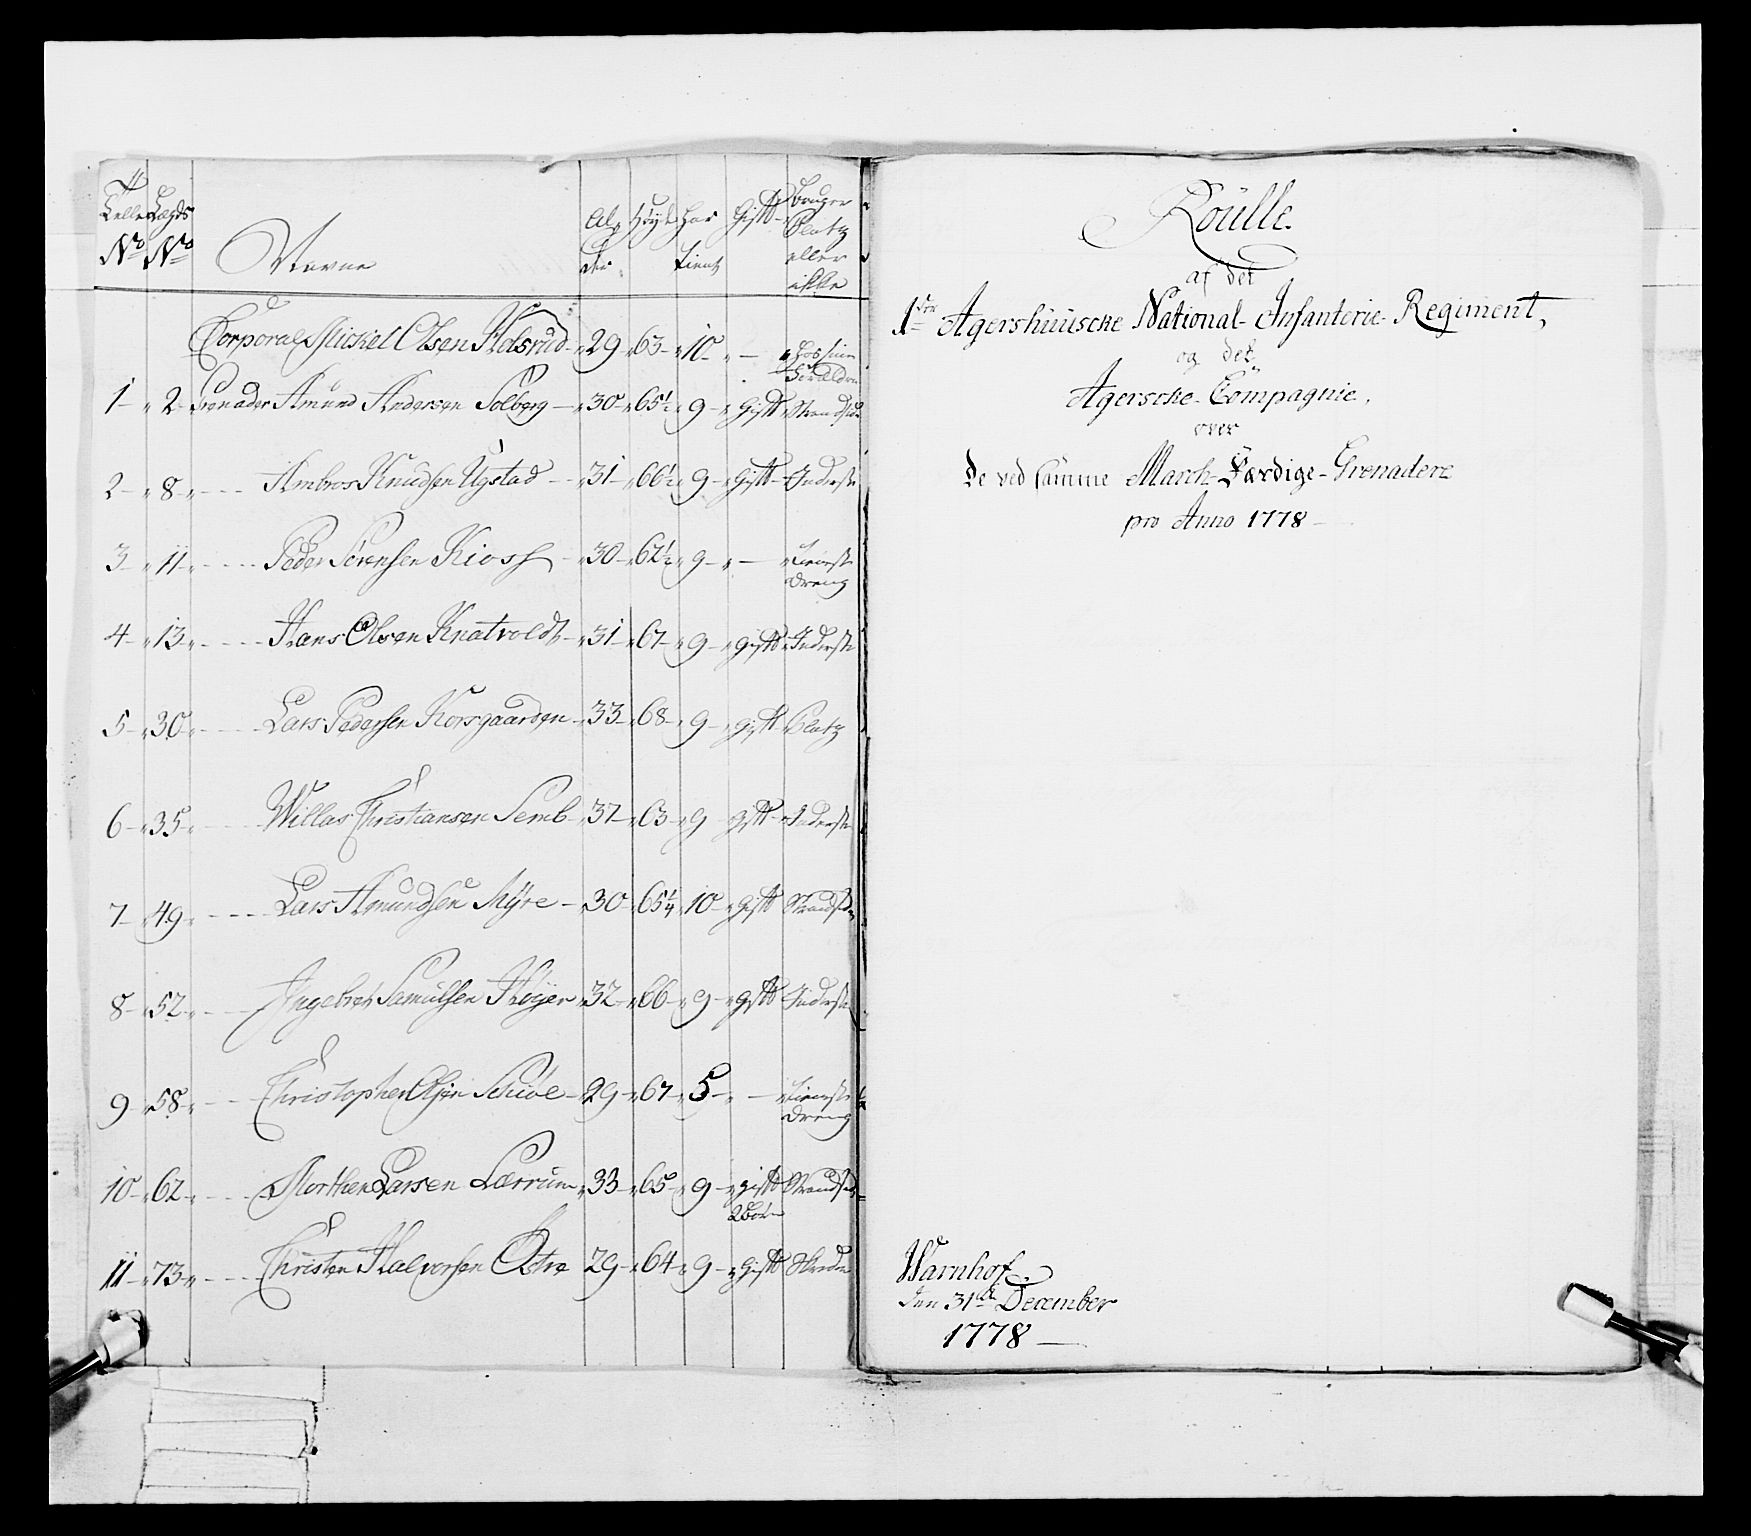 Telle Lægds Navne Al- Høyde har Gift Bruger
No No der tient Platz
eller
ikke
Corporal Michel Olsen Holsrud 29 63 10 — hos sine
Forældre
1 2 Grenader Amund Andersen Solberg 30 65½ 9 Gift Strandsid
2 8 Ambros Knudsen Ugstad 31 66½ 9 Gift Inderste
3 11 Peder Sörensen Kioss 30 62½ 9 — Tieneste
dreng
4 13 Hans Olsen Knatvoldt 31 67 9 gift Inderste
5 30 Lars Pedersen Korsgaarden 33 68 9 gift Platz
6 35 Willas Christiansen Semb 37 63 9 gift Inderste
7 49 Lars Amundsen Myre 30 65¼ 10 Gift Strandsid
8 52 Ingebret Samuelsen Høyer 32 66 9 gift Inderste
9 58 Christopher Olsen Schiöe 29 67 5 — Tieneste
dreng
10 62 Morthen Larsen Lærrum 33 65 9 gift Strandsid
2 börn
11 73 Christen Halvorsen Östre 29 64 9 Gift
Roülle.
af det
1ste Agershuuscke National-Infanterie-Regiment,
og det
Agerscke Compagnie,
over
De ved samme March-Færdige-Grenadere
pro Anno 1778
Warnhof.
den 31te December
1778